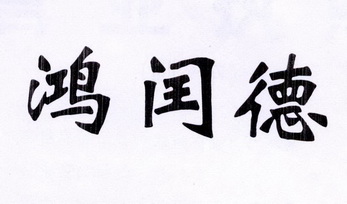 鸿闰德